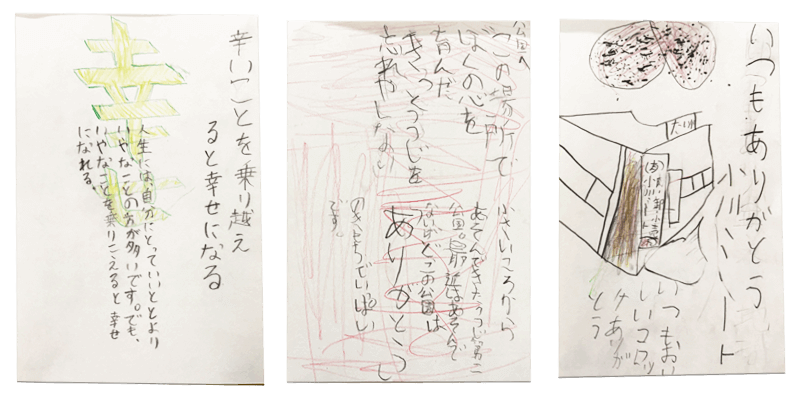 辛いことを乗り越え
ると幸せになる
人生には、自分にとっていいことより
いやなことの方が多いです。でも、
いやなことを乗りこえると幸せ
になれる。
公園へ
この場所で
ぼくの心を
育んだ
きっとつつじを
忘れやしない
小さいころから
あそんできたつつじ第二
公園。最近はあそんで
ないがどこの公園は
ありがとう
のきもちでいっぱい
です。
いつもありがとう
小川ミート
いつもおい
しいコロッ
ケありが
とう